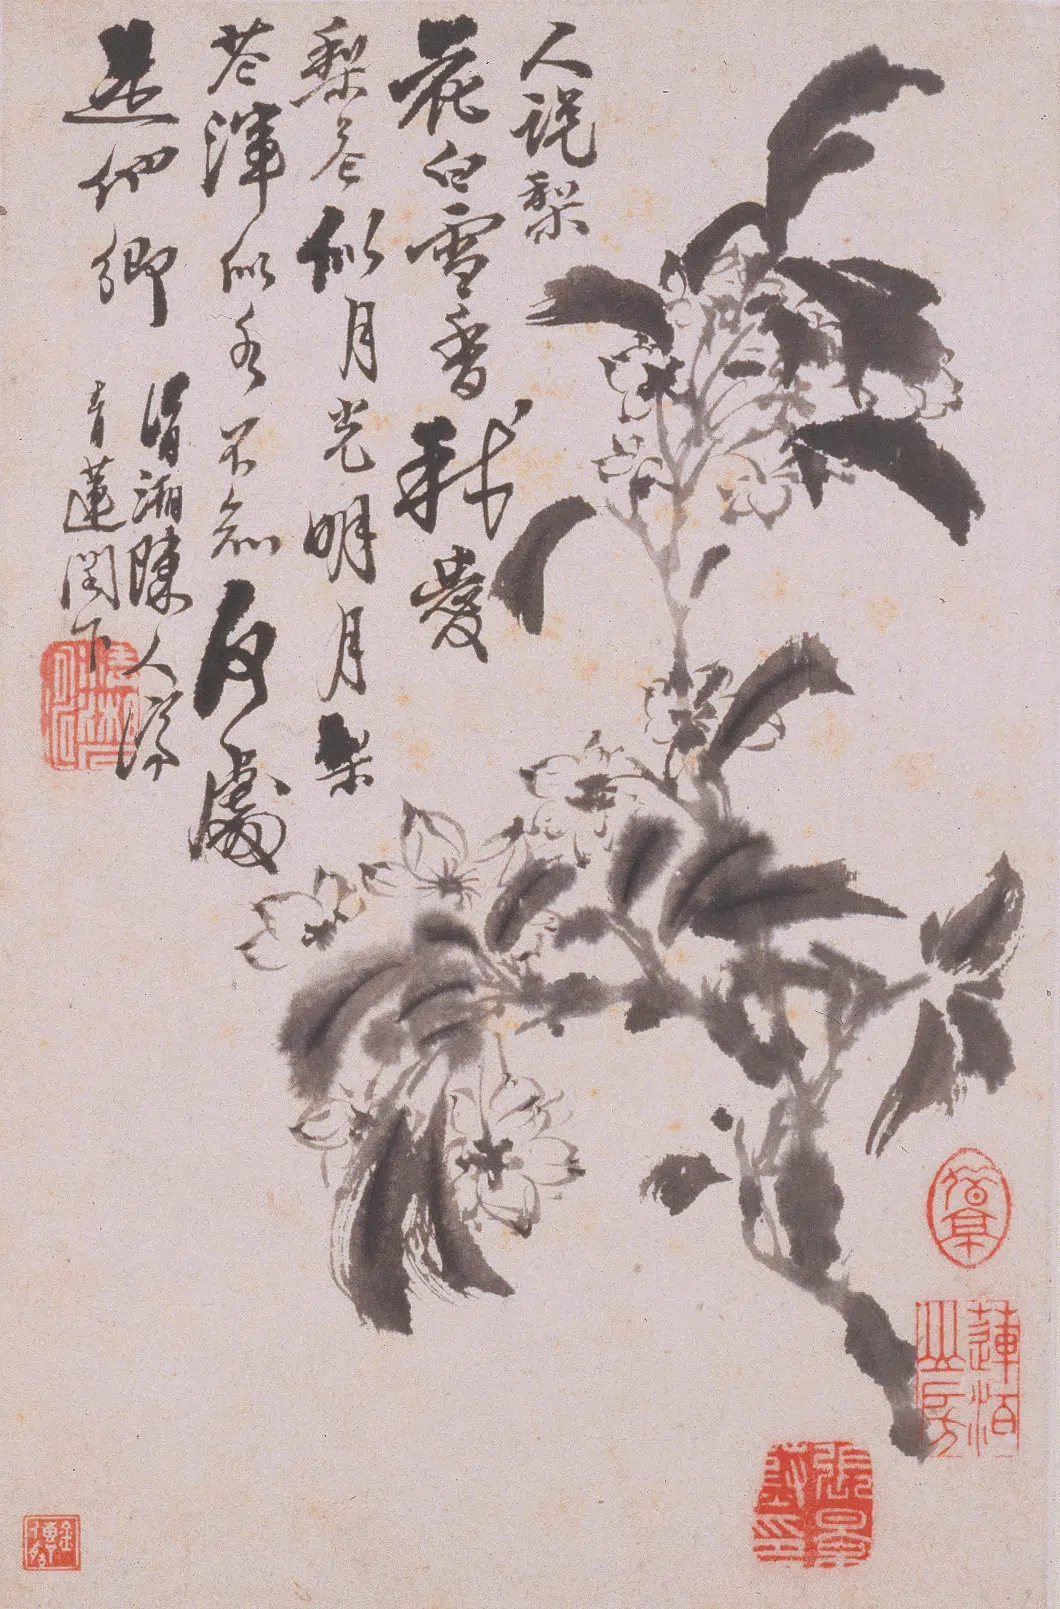 人説梨
花白雪香我愛
梨花似月光明月梨
花渾似水不知何處
是他鄉
清湘陳人濟
青蓮閣下